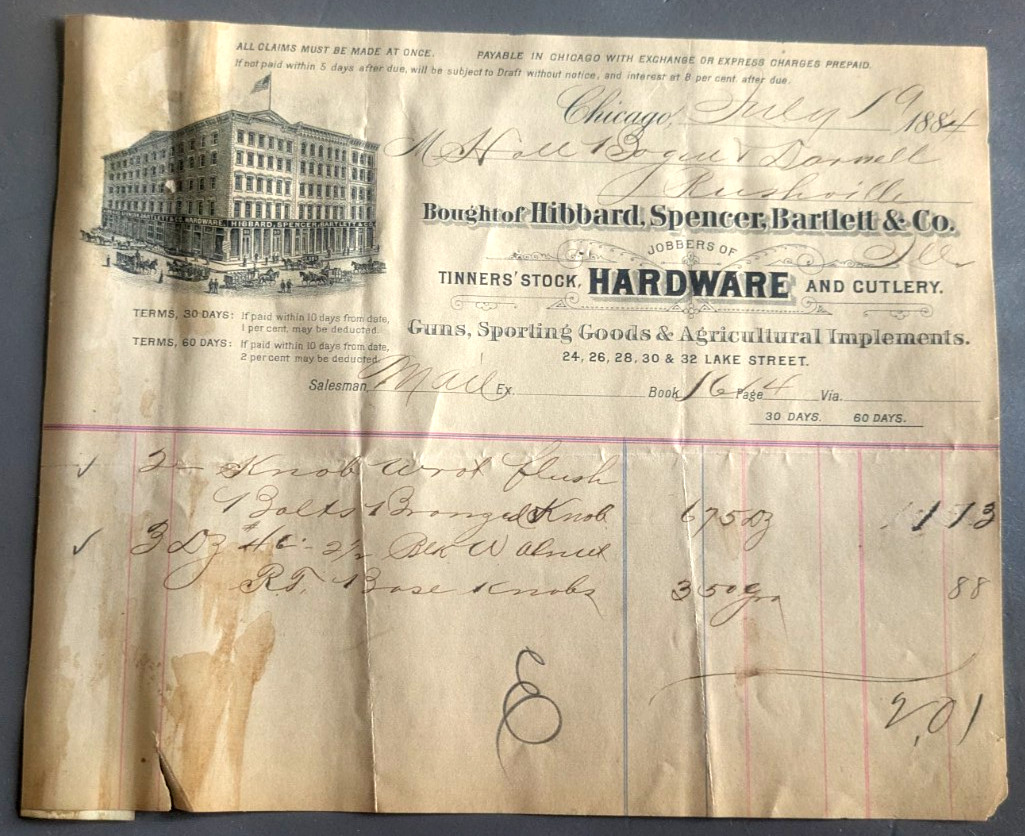 ALL CLAIMS MUST BE MADE AT ONCE. PAYABLE IN CHICAGO WITH EXCHANGE OR EXPRESS CHARGES PREPAID.
If not paid within 5 days after due, will be subject to Draft without notice, and interest at 8 per cent. after due.
Chicago, July 19 1884
M Hall Darnell
Rushville
Bought of Hibbard, Spencer, Bartlett & Co.
Ills
JOBBERS OF
TINNERS' STOCK, HARDWARE AND CUTLERY.
Guns, Sporting Goods & Agricultural Implements.
24, 26, 28, 30 & 32 LAKE STREET.
HIBBARD, SPENCER, BARTLETT & CO.
TERMS, 30 DAYS: If paid within 10 days from date,
1 per cent. may be deducted.
TERMS, 60 DAYS: If paid within 10 days from date,
2 per cent may be deducted.
Salesman, Mail Ex. Book 16 Page 4 Via.
30 DAYS. 60 DAYS.
✓ 2 Knob Wrot flush
Bolts Bronzed Knob 675 Dz 1 13
✓ 3 Dz 2½ Blk Walnut
R.T. Base Knobs 350 gro 88
2,01